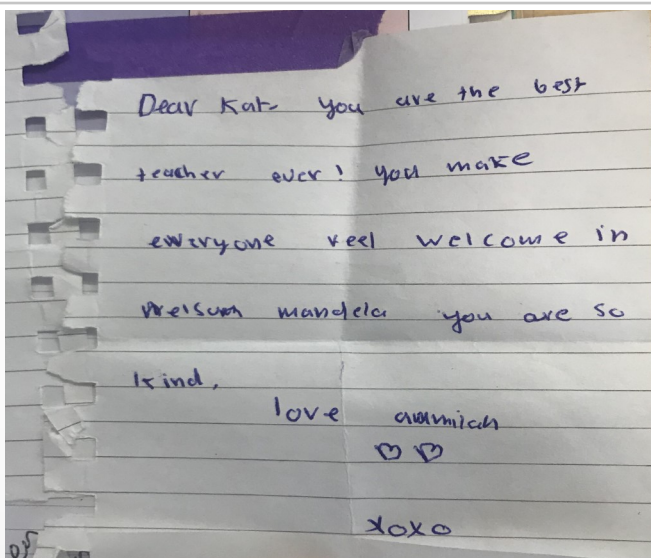 Dear Kat you are the best
teacher ever! you make
everyone feel welcome in
Nelson mandela you are so
kind,
love
xoxo